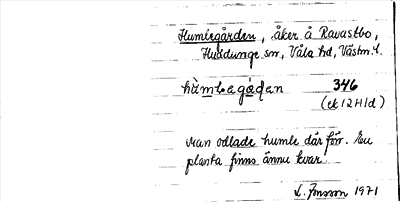 Humlegården, åker å Ravastbo,
Huddunge sn, Våla hd, Västm.l.
hùmlagáḍan 346
(ek 12 H1d)
Man odlade humle där förr. En
planta finns ännu kvar.
L. Jonsson 1971